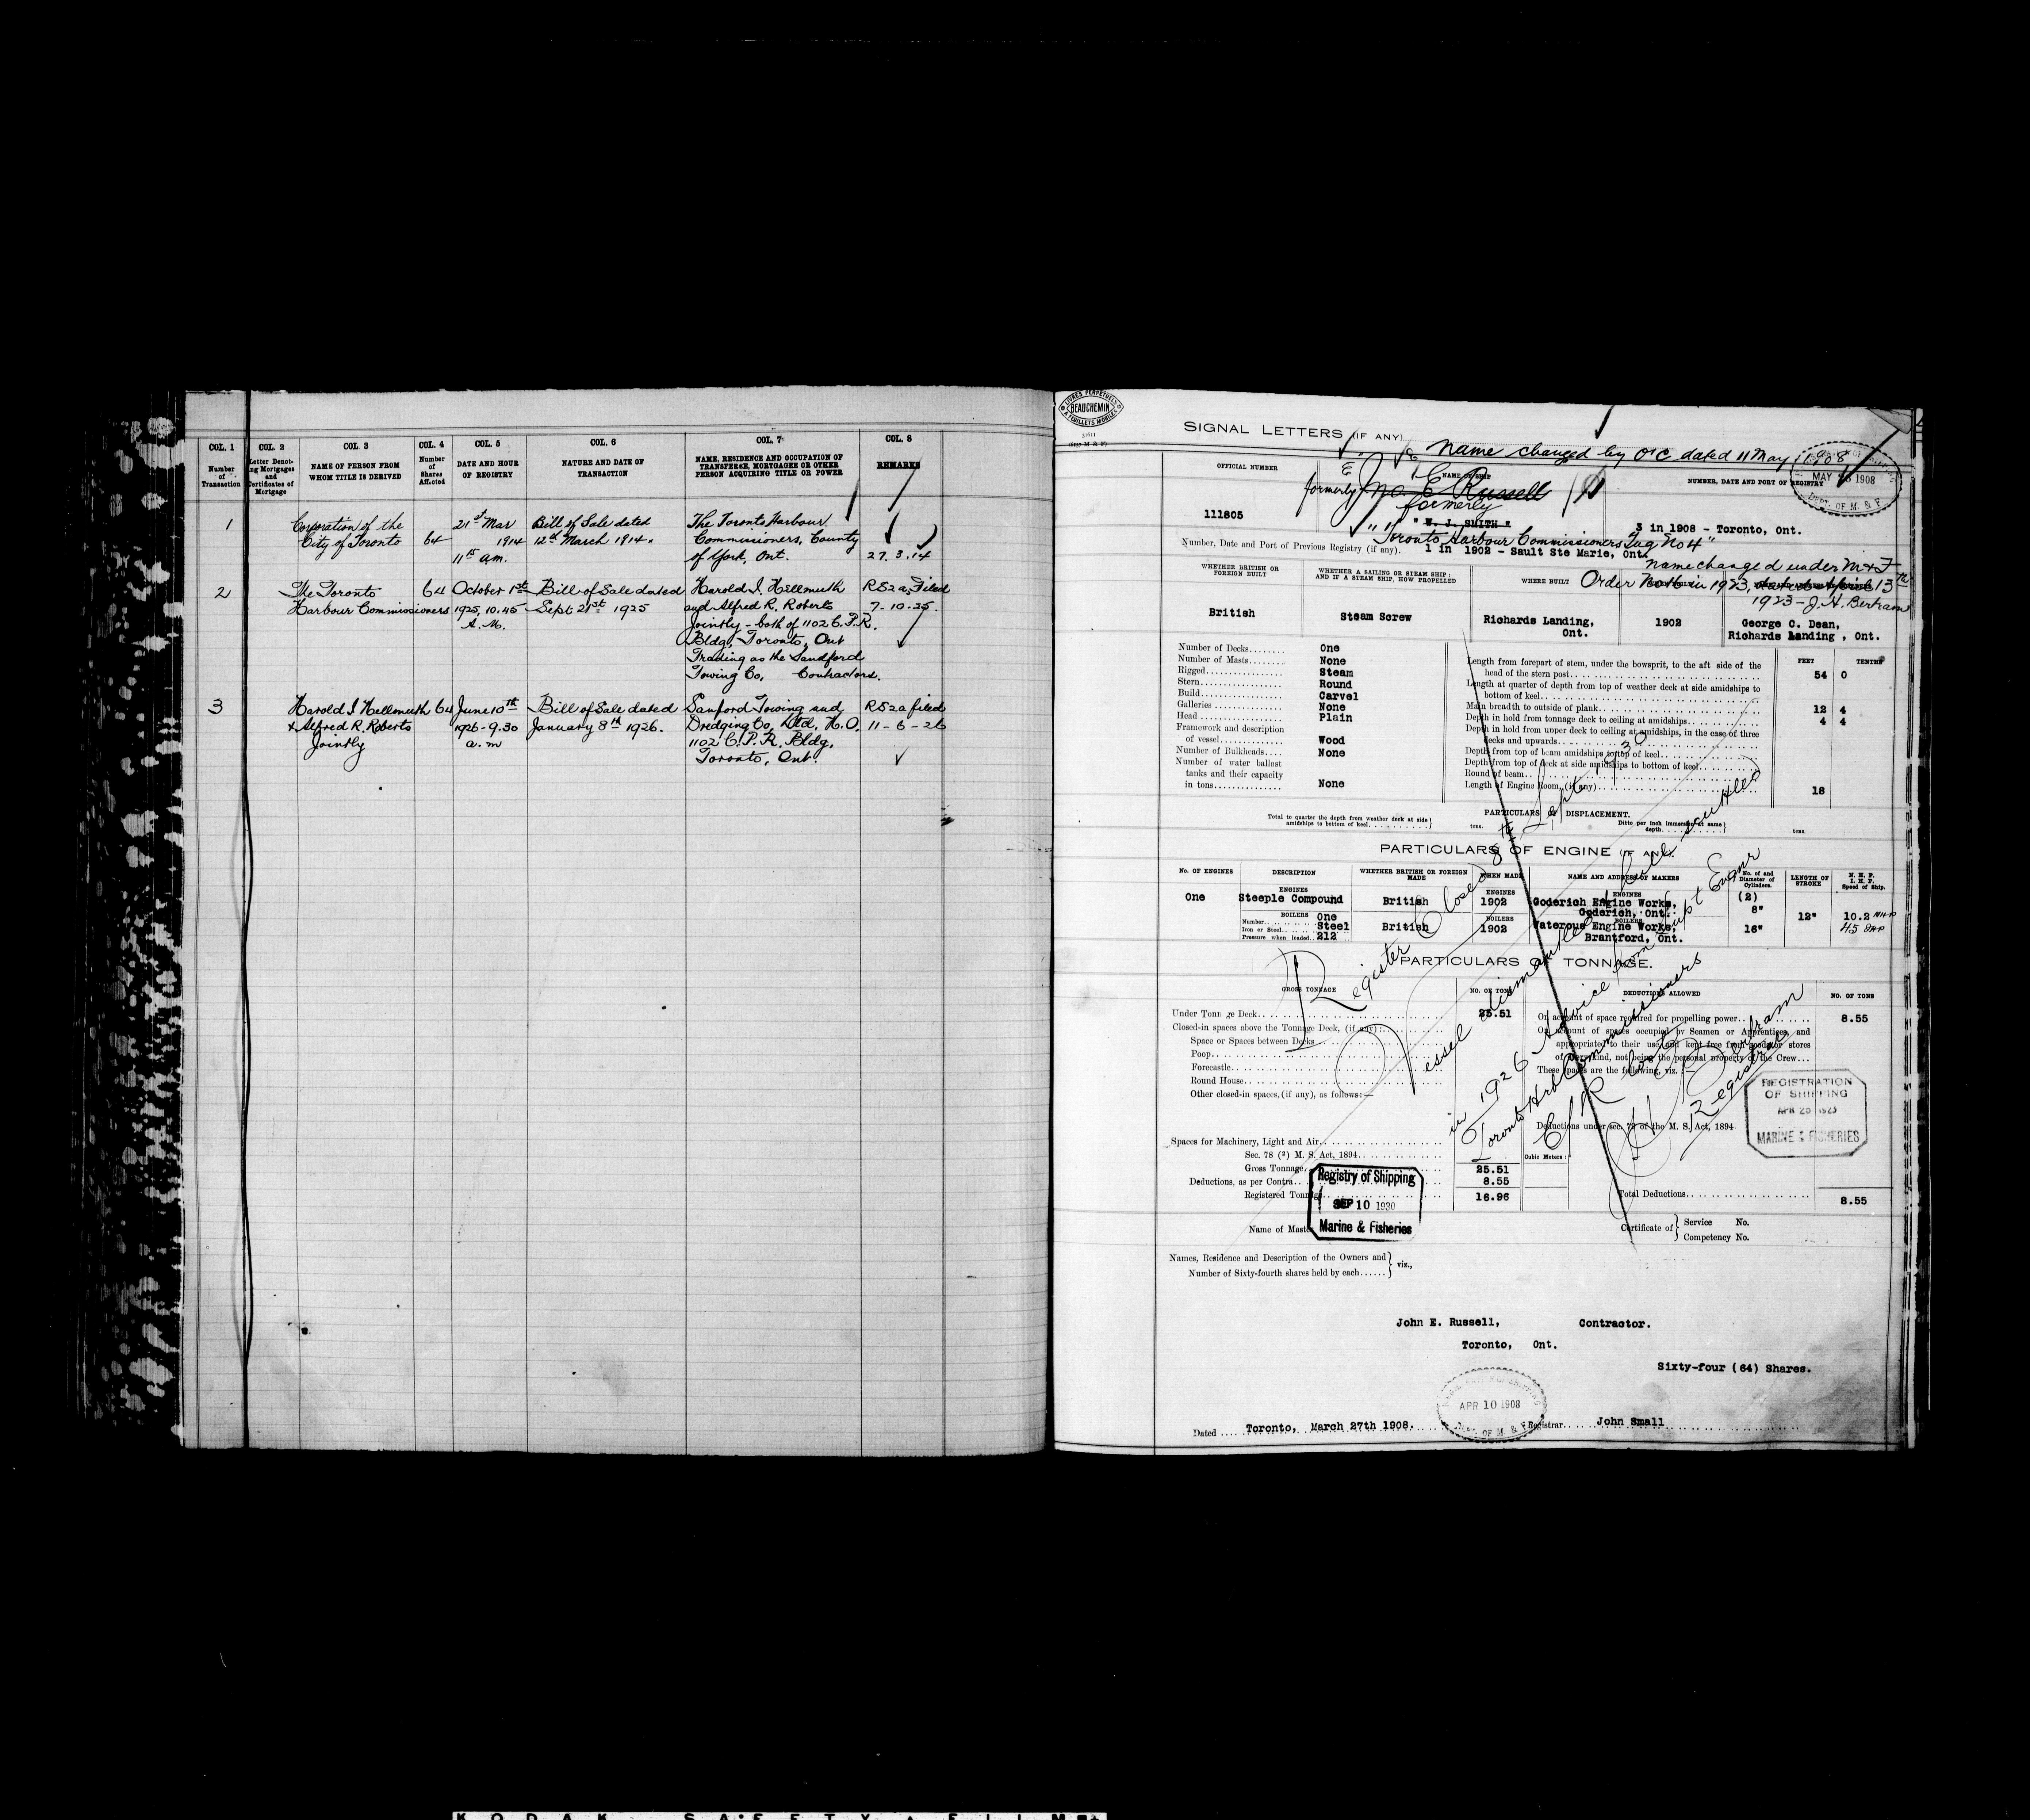 COL. 1
Number of Transaction
COL. 2
Letter Denoting Mortgages and Certificates of Mortgage
COL. 3
NAME OF PERSON FROM WHOM TITLE IS DERIVED
COL. 4
Number of Shares Affected
COL. 5
DATE AND HOUR OF REGISTRY
COL. 6
NATURE AND DATE OF TRANSACTION
COL. 7
NAME, RESIDENCE AND OCCUPATION OF TRANSFEREE, MORTGAGEE OR OTHER PERSON ACQUIRING TITLE OR POWER
COL. 8
REMARKS
1 Corporation of the 21st Mar Bill of Sale dated The Toronto Harbour
City of Toronto 64 1914 12th March 1914. Commissioners, County
11th am. of York, Ont. 27.3.14
2 The Toronto 64 October 1st Bill of Sale dated Harold I. Hellmuth RS2a Filed
Harbour Commissioners 1925, 10.45 Sept 21st 1925 and Alfred R. Roberts 7-10-25.
A.M. Jointly - both of 1102 C.P.R.
Bldg, Toronto, Ont
Trading as the Sandford
Towing Co, Contractors.
3 Harold I Hellmuth 64 June 10th Bill of Sale dated Sanford Towing and RS2a filed
& Alfred R. Roberts 1926-9.30 January 8th 1926. Dredging Co, Ltd, H.O. 11-6-26
Jointly a.m 1102 C.P.R. Bldg,
Toronto, Ont.
LIVRES PERPETUELS
BEAUCHEMIN
A FEUILLETS MOBILES
SIGNAL LETTERS (IF ANY)
Name changed by O/C dated 11 May 1908
OFFICIAL NUMBER
NAME OF SHIP
NUMBER, DATE AND PORT OF REGISTRY
MAY 1908
DEPT. OF M. & F.
formerly Jno E Russell
formerly
111805
" W. J. SMITH "
3 in 1908 - Toronto, Ont.
"Toronto Harbour Commissioners Tug No 4"
Number, Date and Port of Previous Registry (if any). 1 in 1902 - Sault Ste Marie, Ont.
Name changed under M & F
Order in 1923, 13th
1923 - J. H. Bertram
WHETHER BRITISH OR FOREIGN BUILT
WHETHER A SAILING OR STEAM SHIP; AND IF A STEAM SHIP, HOW PROPELLED
WHERE BUILT
British
Steam Screw
Richards Landing, Ont.
1902
George C. Dean,
Richards Landing, Ont.
Number of Decks........ One
Number of Masts........ None
Rigged........ Steam
Stern........ Round
Build........ Carvel
Galleries........ None
Head........ Plain
Framework and description of vessel........ Wood
Number of Bulkheads.... None
Number of water ballast tanks and their capacity in tons........ None
FEET TENTHS
Length from forepart of stem, under the bowsprit, to the aft side of the head of the stern post........ 54 0
Length at quarter of depth from top of weather deck at side amidships to bottom of keel........
Main breadth to outside of plank........ 12 4
Depth in hold from tonnage deck to ceiling at amidships........ 4 4
Depth in hold from upper deck to ceiling at amidships, in the case of three decks and upwards........
Depth from top of beam amidships to top of keel........
Depth from top of deck at side amidships to bottom of keel........
Round of beam........
Length of Engine Room, (if any)........ 18
PARTICULARS OF DISPLACEMENT.
Total to quarter the depth from weather deck at side amidships to bottom of keel........ tons.
Ditto per inch immersion at same depth........ tons.
PARTICULARS OF ENGINE (IF ANY).
No. OF ENGINES
DESCRIPTION
WHETHER BRITISH OR FOREIGN MADE
WHEN MADE
NAME AND ADDRESS OF MAKERS
No. of and Diameter of Cylinders.
LENGTH OF STROKE
N. H. P.
I. H. P.
Speed of Ship.
ENGINES ENGINES ENGINES
One Steeple Compound British 1902 Goderich Engine Works, Goderich, Ont. (2) 8" 12" 10.2 NHP
BOILERS BOILERS BOILERS
Number........ One
Iron or Steel........ Steel
Pressure when loaded.. 212
British 1902 Waterous Engine Works, Brantford, Ont. 16" 45 IHP
PARTICULARS OF TONNAGE.
GROSS TONNAGE
NO. OF TONS
DEDUCTIONS ALLOWED
NO. OF TONS
Under Tonnage Deck........ 25.51
Closed-in spaces above the Tonnage Deck, (if any):
Space or Spaces between Decks
Poop
Forecastle
Round House
Other closed-in spaces, (if any), as follows:—
Spaces for Machinery, Light and Air
Sec. 78 (2) M. S. Act, 1894
Gross Tonnage........ 25.51
Deductions, as per Contra.. 8.55
Registered Tonnage 16.96
On account of space required for propelling power........ 8.55
On account of spaces occupied by Seamen or Apprentices, and appropriated to their use, and kept free from goods or stores of any kind, not being the personal property of the Crew...
These spaces are the following, viz.:—
Deductions under sec. 79 of the M. S. Act, 1894
Cubic Meters:
Total Deductions........ 8.55
Register Closed 8th Sept 1930
Vessel dismantled hull scuttled
in 1926 Advice from Supt Engnr
Toronto Hrb Commissioners
J H Bertram
Registrar
REGISTRATION
OF SHIPPING
APR 25 1923
MARINE & FISHERIES
Registry of Shipping
SEP 10 1930
Marine & Fisheries
Name of Master
Certificate of
Service No.
Competency No.
Names, Residence and Description of the Owners and Number of Sixty-fourth shares held by each...... viz.,
John E. Russell, Contractor.
Toronto, Ont.
Sixty-four (64) Shares.
APR 10 1908
DEPT. OF M. & F.
Dated .... Toronto, March 27th 1908.
Registrar.... John Small
KODAK SAFETY FILM